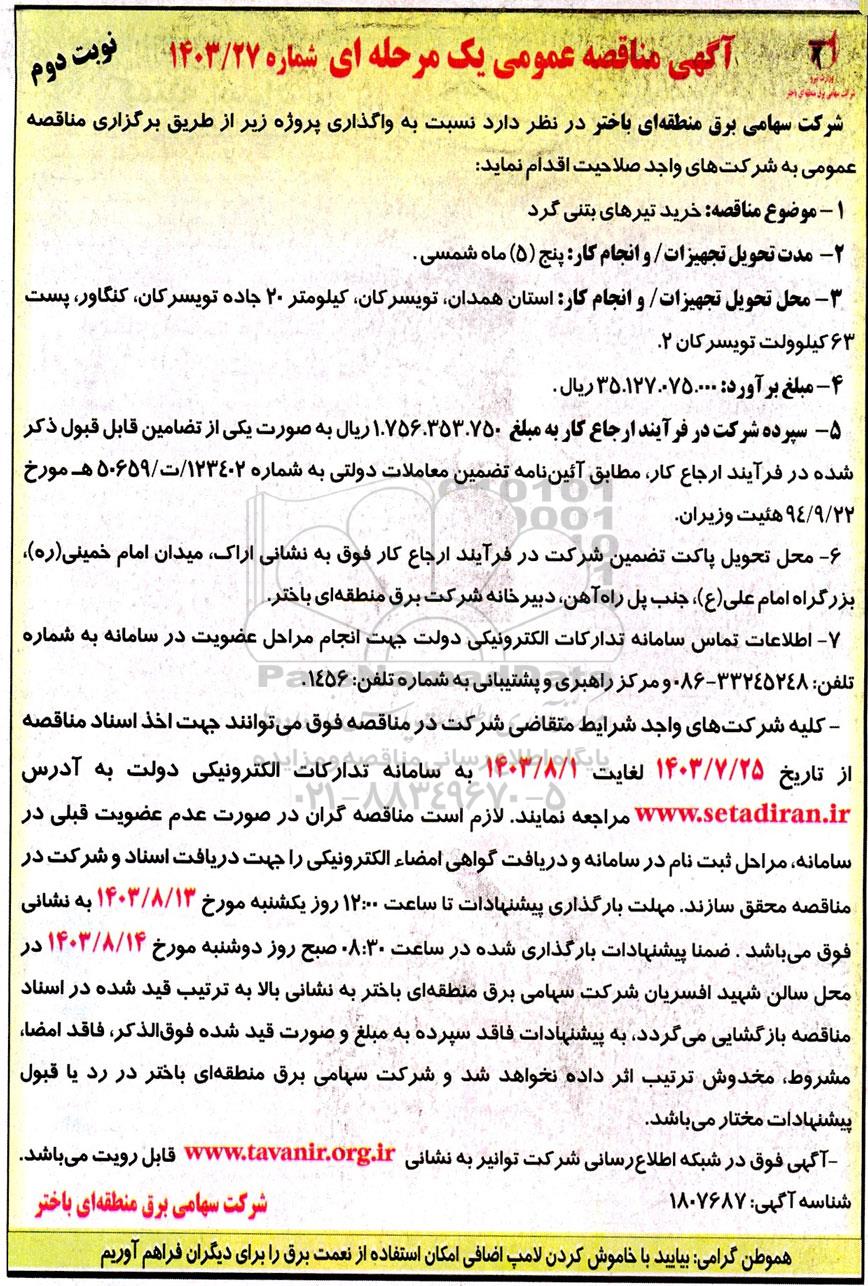 آگهی مناقصه عمومی یک مرحله ای شماره ۱۴۰۳/۲۷
نوبت دوم
وزارت نیرو
شرکت سهامی برق منطقه‌ای باختر
شرکت سهامی برق منطقه‌ای باختر در نظر دارد نسبت به واگذاری پروژه زیر از طریق برگزاری مناقصه
عمومی به شرکت‌های واجد صلاحیت اقدام نماید:
۱- موضوع مناقصه: خرید تیرهای بتنی گرد
۲- مدت تحویل تجهیزات/ و انجام کار: پنج (۵) ماه شمسی .
۳- محل تحویل تجهیزات/ و انجام کار: استان همدان، تویسرکان، کیلومتر ۲۰ جاده تویسرکان، کنگاور، پست
۶۳ کیلوولت تویسرکان ۲.
۴- مبلغ برآورد: ۳۵.۱۲۷.۰۷۵.۰۰۰ ریال .
۵- سپرده شرکت در فرآیند ارجاع کار به مبلغ ۱.۷۵۶.۳۵۳.۷۵۰ ریال به صورت یکی از تضامین قابل قبول ذکر
شده در فرآیند ارجاع کار، مطابق آئین‌نامه تضمین معاملات دولتی به شماره ۱۲۳۴۰۲/ت/۵۰۶۵۹ هـ مورخ
۹۴/۹/۲۲ هئیت وزیران.
۶- محل تحویل پاکت تضمین شرکت در فرآیند ارجاع کار فوق به نشانی اراک، میدان امام خمینی(ره)،
بزرگراه امام علی(ع)، جنب پل راه‌آهن، دبیرخانه شرکت برق منطقه‌ای باختر.
۷- اطلاعات تماس سامانه تدارکات الکترونیکی دولت جهت انجام مراحل عضویت در سامانه به شماره
تلفن: ۳۳۲۴۵۲۴۸-۰۸۶ و مرکز راهبری و پشتیبانی به شماره تلفن: ۱۴۵۶.
- کلیه شرکت‌های واجد شرایط متقاضی شرکت در مناقصه فوق می‌توانند جهت اخذ اسناد مناقصه
از تاریخ ۱۴۰۳/۷/۲۵ لغایت ۱۴۰۳/۸/۱ به سامانه تدارکات الکترونیکی دولت به آدرس
www.setadiran.ir مراجعه نمایند. لازم است مناقصه گران در صورت عدم عضویت قبلی در
سامانه، مراحل ثبت نام در سامانه و دریافت گواهی امضاء الکترونیکی را جهت دریافت اسناد و شرکت در
مناقصه محقق سازند. مهلت بارگذاری پیشنهادات تا ساعت ۱۲:۰۰ روز یکشنبه مورخ ۱۴۰۳/۸/۱۳ به نشانی
فوق می‌باشد . ضمنا پیشنهادات بارگذاری شده در ساعت ۰۸:۳۰ صبح روز دوشنبه مورخ ۱۴۰۳/۸/۱۴ در
محل سالن شهید افسریان شرکت سهامی برق منطقه‌ای باختر به نشانی بالا به ترتیب قید شده در اسناد
مناقصه بازگشایی می‌گردد، به پیشنهادات فاقد سپرده به مبلغ و صورت قید شده فوق‌الذکر، فاقد امضا،
مشروط، مخدوش ترتیب اثر داده نخواهد شد و شرکت سهامی برق منطقه‌ای باختر در رد یا قبول
پیشنهادات مختار می‌باشد.
-آگهی فوق در شبکه اطلاع‌رسانی شرکت توانیر به نشانی www.tavanir.org.ir قابل رویت می‌باشد.
شناسه آگهی: ۱۸۰۷۶۸۷
شرکت سهامی برق منطقه‌ای باختر
هموطن گرامی: بیایید با خاموش کردن لامپ اضافی امکان استفاده از نعمت برق را برای دیگران فراهم آوریم
پایگاه اطلاع رسانی مناقصه و مزایده
۰۲۱-۸۸۳۴۹۶۷۰-۵